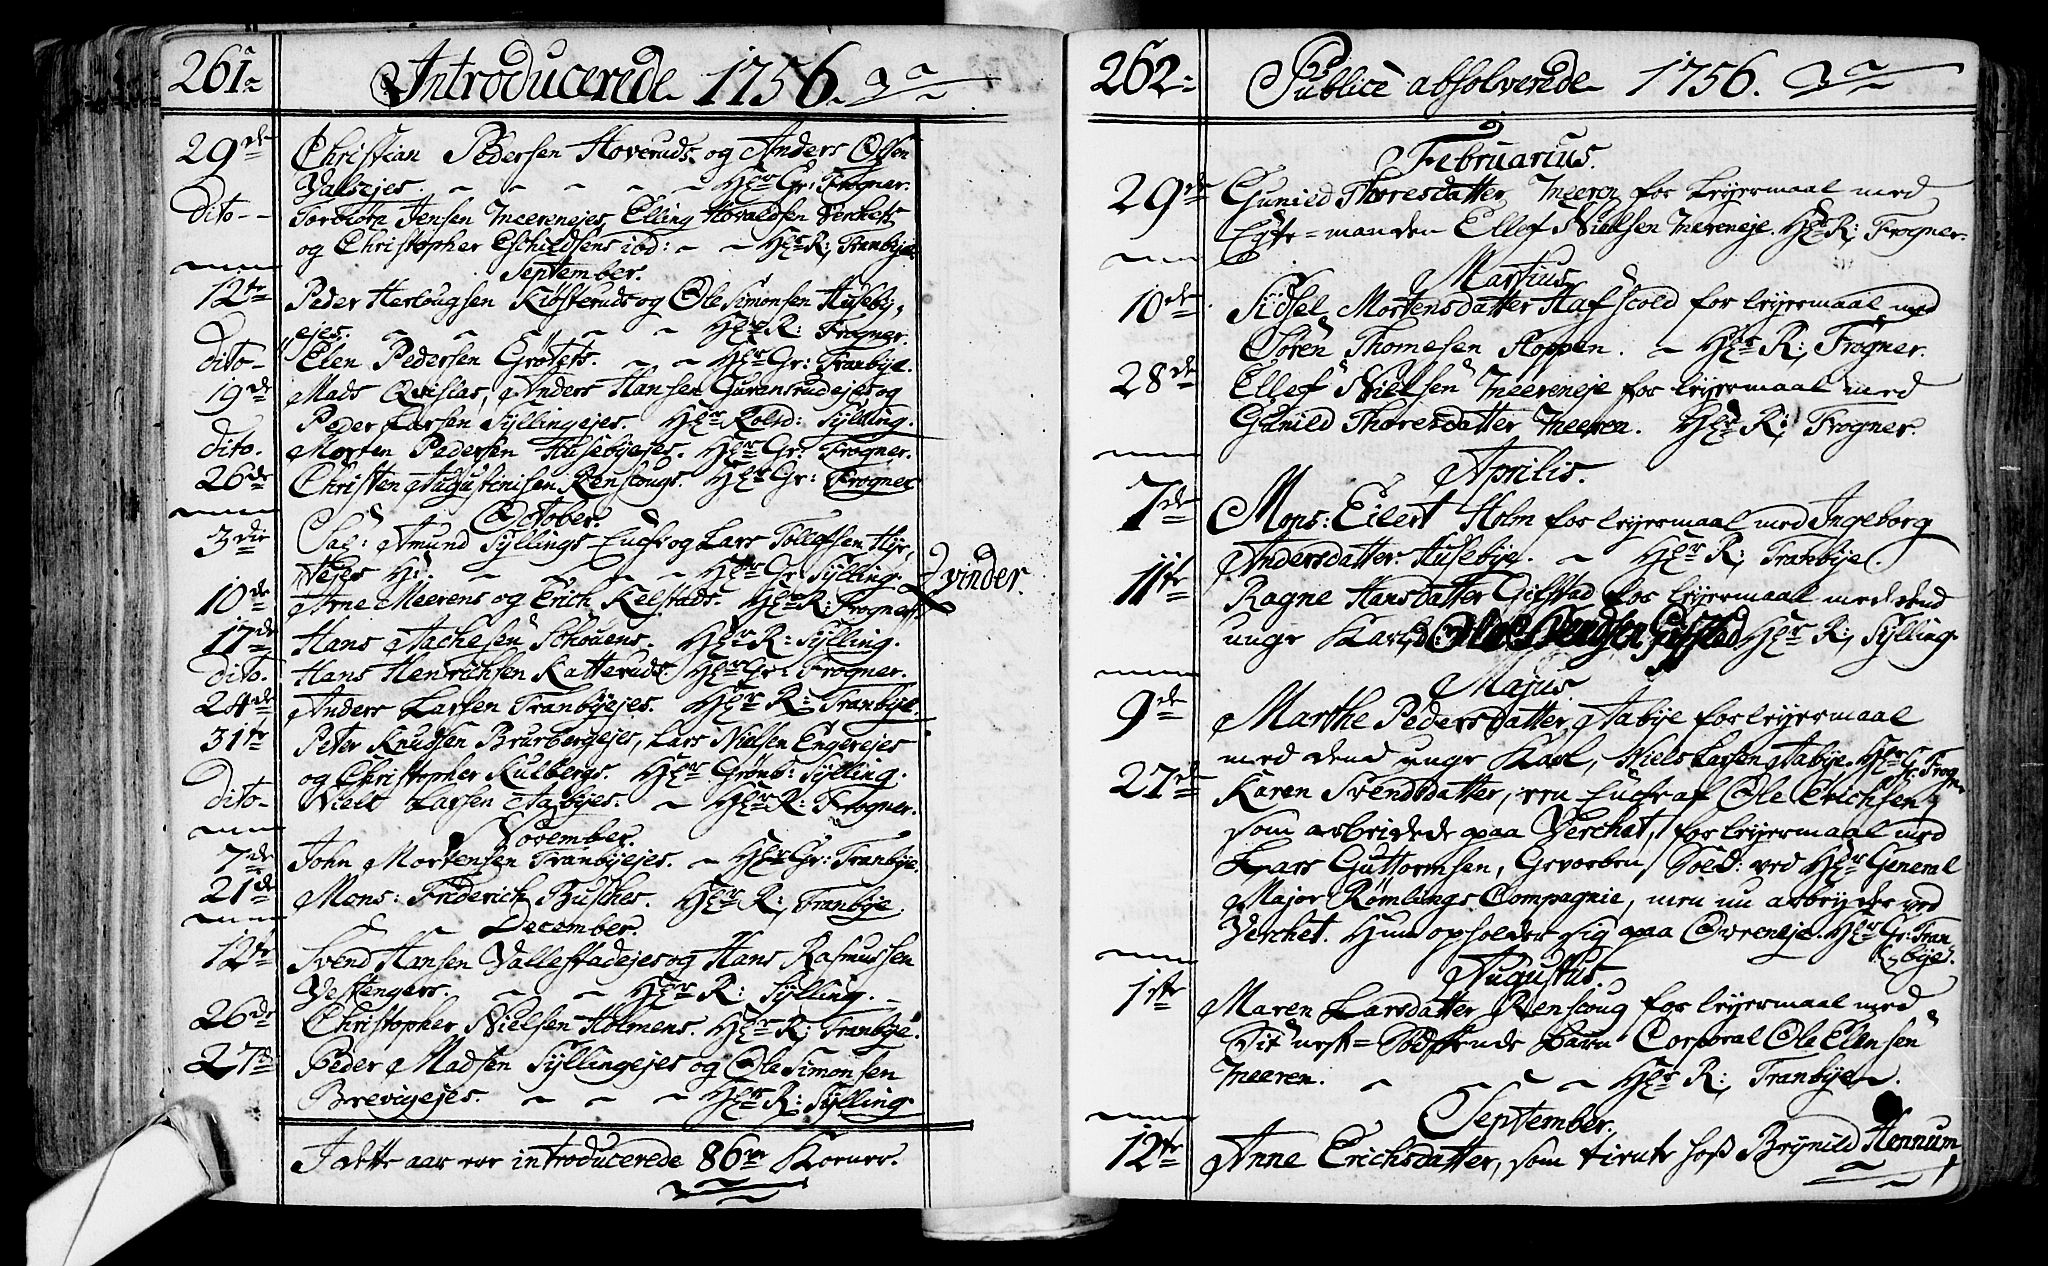 261.
Introducerede 1756.
29de Christian Pedersen Hoveruds og Anders Olsen
Valsejes. Hr Gr: Frogner.
Dito Torbiørn Jensen Meerenejes, Elling Hovaldsen Verkets
og Christopher Eschildsens ibd: Hr R; Tranbye.
September.
12te Peder Herlougsen Kiøsteruds og Ole Simonsen Huseby,
ejes. Hr R: Frogner.
dito Elen Pedersen Grøtets. Hr Gr: Tranbye.
19de Mads Qvislas, Anders Hansen Guransrudejes og
Peder Larsen Syllingejes. Hr Rolsd: Sylling.
dito. Morten Pedersen Husebyejes. Hr Gr: Frogner.
26de Christen Augustinisen Renscougs. Hr Gr: Frogner
October.
3die Sal: Amund Syllings Enche og Lars Tollefsen Hør,
tejes Hr Gr: Sylling.
vinder.
10de Arne Meerens og Erich Kelstads. Hr R: Frogner
17de Hans Aachesen Schouens. Hr R: Sylling.
dito. Hans Henrichsen Katteruds. Hr Gr: Frogner.
24de Anders Larsen Tranbyejes. Hr R: Tranbye.
31te Peter Knudsen Brurbergejes, Lars Nielsen Engerejes
og Christopher Kulbergs. Hr Grønb: Sylling.
dito Niels Larsen Aabyes. Hr R: Frogner.
November.
7de John Mortensen Tranbyejes. Hr Gr: Tranbye.
21de Mons: Friderich Busches. Hr R; Tranbye.
December.
12te Svend Hansen Vallestadejes og Hans Rasmussen
Vestengers. Hr R: Sylling.
26de Christopher Nielsen Holmens. Hr R; Tranbye.
27de Peder Madsen Syllingejes og Ole Simonsen
Brevigejes. Hr R: Sylling
I dette aar er introducerede 86 Koener.
262.
Publicè absolverede 1756.
Februarius.
29de Gunild Thoresdatter Meeren for leyermaal med
Egte-manden Ellef Nielsen Mereneje. Hr R; Frogner.
Martius
10de Sidsel Mortensdatter Hafscold for leyermaal med
Søren Thomesen Hoppen. Hr R; Frogner.
28de Ellef Nielsen Meereneje for leyermaal med
Gunild Thoresdatter Meeren. Hr R; Frogner.
Aprilis.
7de Mons: Eilert Holm for leyermaal med Ingeborg
Andersdatter Husebye. Hr R; Tranbye.
11te Ragne Hansdatter Gifstad for leyermaal med dend
unge Karl, Ole Svendsen Gifstad Hr R; Sylling.
Majus
9de Marthe Pedersdatter Aabye for leyermaal
med dend unge Karl, Niels Larsen Aabye. Hr Gr: Frogner
27de Karen Svendsdatter, een Enche af Ole Erichsen,
som arbeidede paa Verchet, for leyermaal med
Lars Guttormsen, Gevorben Sold: ved Hr General
Major Rømlings Compagnie, men nu arbeyder ved
Verchet. Hun opholder sig paa Overneje. Hr Gr: Tran,
bye.
Augustus.
1ste Maren Larsdatter Renscoug for leyermaal med
Sit nest-Sødskende barn Corporal Ole Ellensen
Meeren. Hr R; Tranbye.
September.
12te Anne Erichsdatter, som tiente hos Brynild Hennum